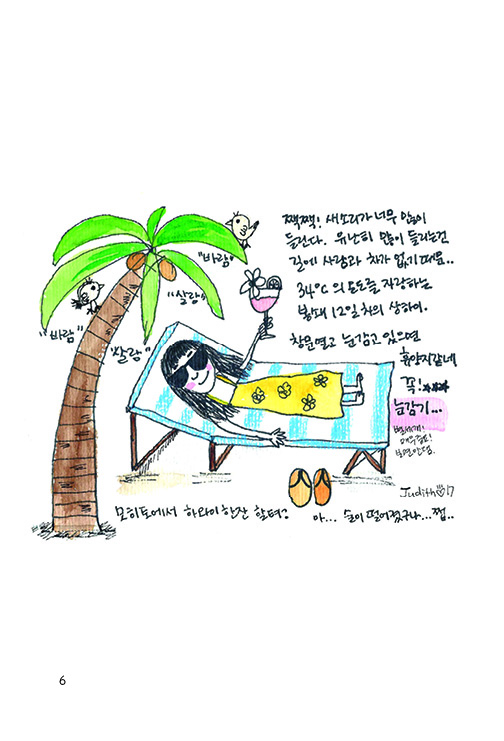 짹짹! 새소리가 너무 많이
들린다. 유난히 많이 들리는건
길에 사람과 차가 없기때문..
34°C의 온도를 자랑하는
봉쇄 12일차의 상하이.
창문열고 눈감고 있으면
휴양지같네
꼭!★★★
눈감기...
"바람"
"살랑"
"바람"
"살랑"
Judith♡17
모히토에서 하와이 한잔 할텨?
아... 술이 떨어졌구나...쩝..
6